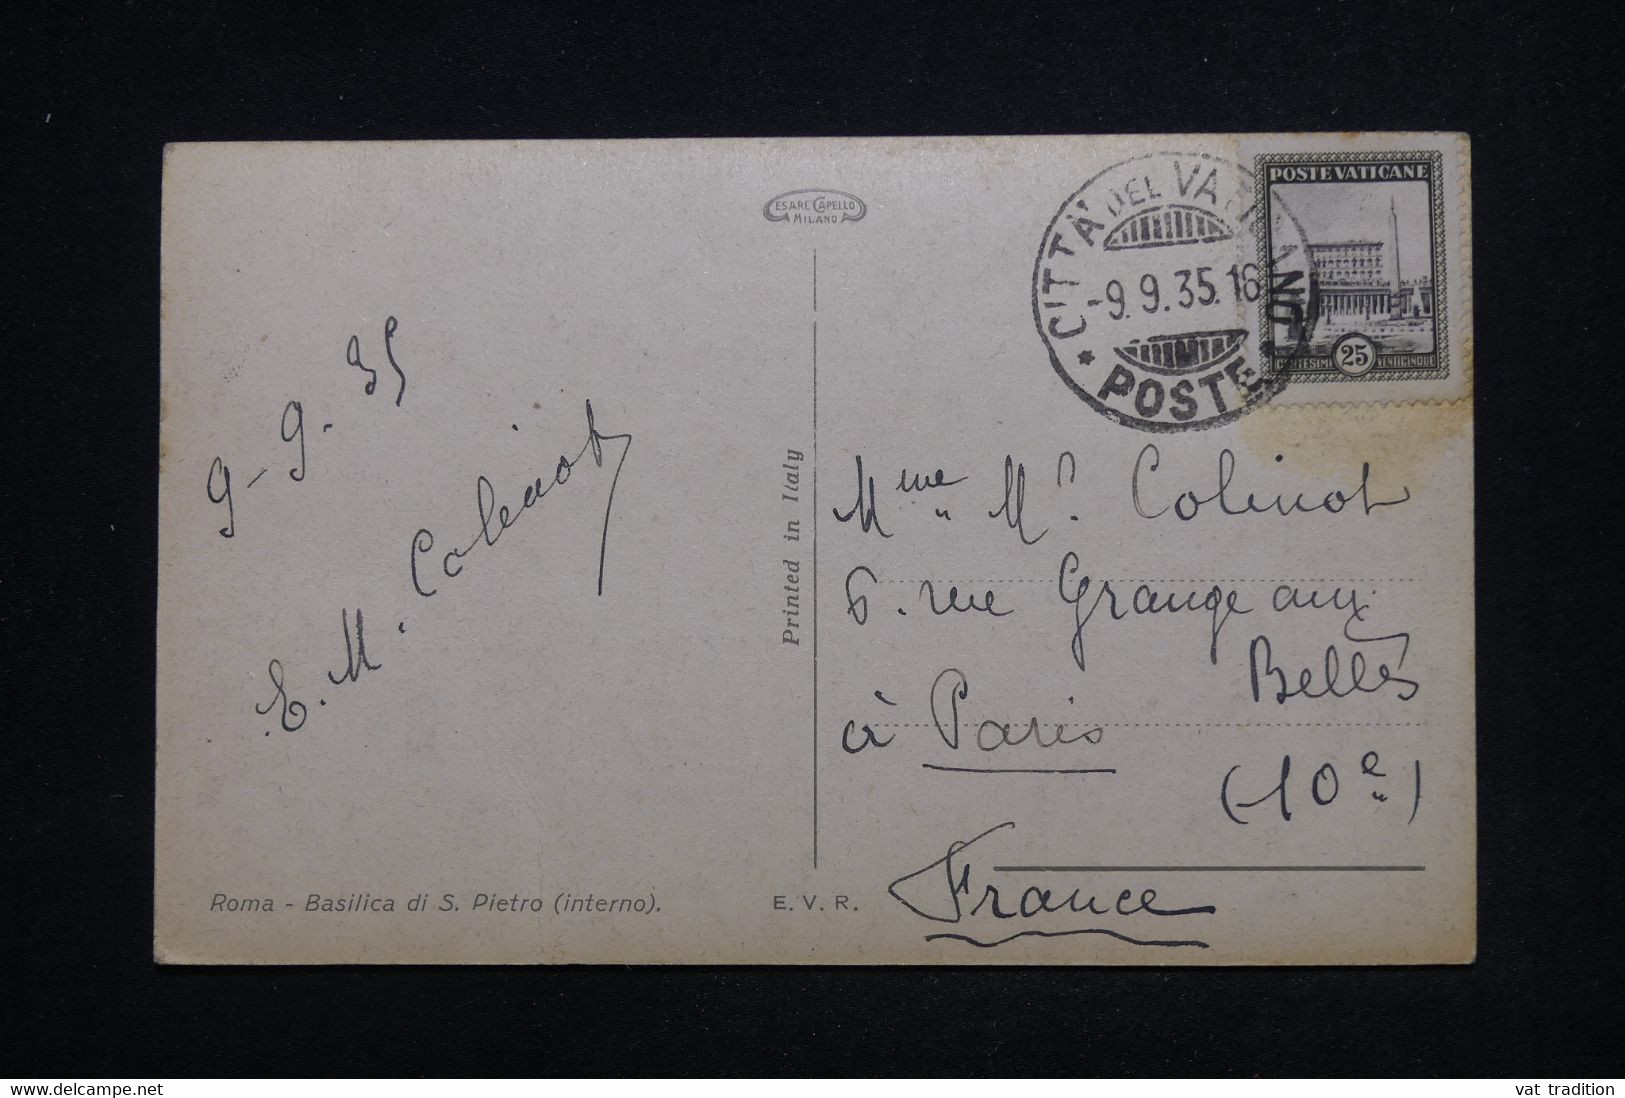 ESARE CAPELLO
MILANO
CITTA' DEL VATICANO
-9. 9. 35. 16
* POSTE *
POSTE VATICANE
CENTESIMI 25 VENTICINQUE
9-9.35
E. M. Colinot
Printed in Italy
Mme M? Colinot
6. rue Grange aux
Belles
à Paris
(10e)
France
Roma - Basilica di S. Pietro (interno).
E. V. R.
www.delcampe.net
vat tradition